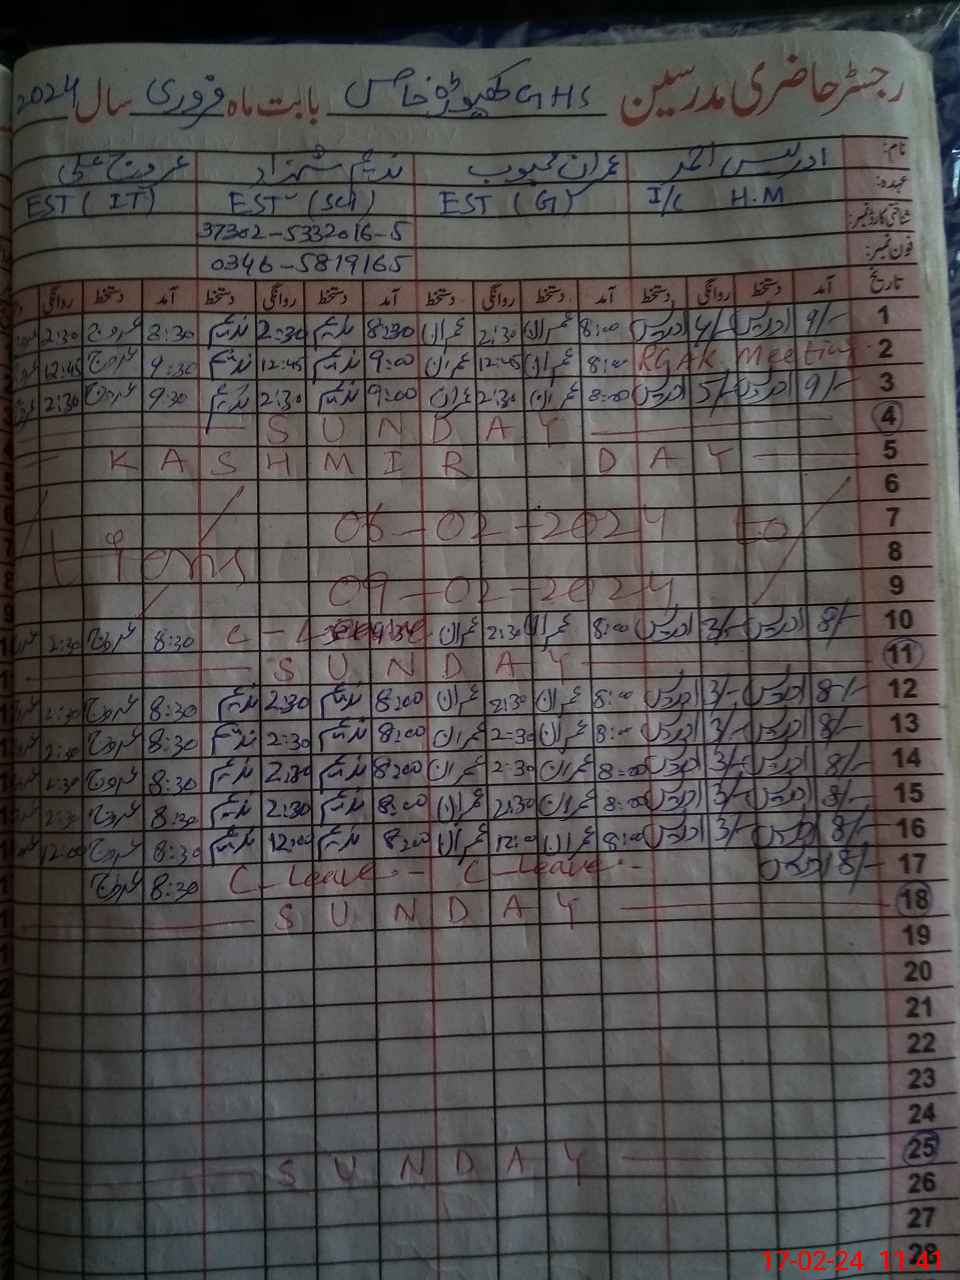 رجسٹر حاضری مدرسین GHS کھیوڑہ خاص بابت ماہ فروری سال 2024
نام: ادریس احمد عمران محبوب ندیم شہزاد
عہدہ: I/C H.M EST (G) EST (Sci) EST (IT)
شناختی کارڈ نمبر: 37302-5332016-5
فون نمبر: 0346-5819165
تاریخ آمد دستخط روانگی دستخط آمد دستخط روانگی دستخط آمد دستخط روانگی دستخط آمد دستخط روانگی
1 9/- ادریس 4/- ادریس 8:00 عمران 2:30 عمران 8:30 ندیم 2:30 ندیم 8:30 عروج 2:30
2 RGAK Meeting 8:00 عمران 12:45 عمران 9:00 ندیم 12:45 ندیم 9:30 عروج 12:45
3 9/- ادریس 5/- ادریس 8:00 عمران 2:30 عمران 9:00 ندیم 2:30 ندیم 9:30 عروج 2:30
4 SUNDAY
5 KASHMIR DAY
6
7 06-02-2024 to
8
9 09-02-2024
10 8/- ادریس 3/- ادریس 8:00 عمران 2:30 عمران C-Leave 8:30 عروج 2:30
11 SUNDAY
12 8/- ادریس 3/- ادریس 8:00 عمران 2:30 عمران 8:00 ندیم 2:30 ندیم 8:30 عروج 2:30
13 8/- ادریس 3/- ادریس 8:00 عمران 2:30 عمران 8:00 ندیم 2:30 ندیم 8:30 عروج 2:30
14 8/- ادریس 3/- ادریس 8:00 عمران 2:30 عمران 8:00 ندیم 2:30 ندیم 8:30 عروج 2:30
15 8/- ادریس 3/- ادریس 8:00 عمران 2:30 عمران 8:00 ندیم 2:30 ندیم 8:30 عروج 2:30
16 8/- ادریس 3/- ادریس 8:00 عمران 12:00 عمران 8:00 ندیم 12:00 ندیم 8:30 عروج 12:00
17 8/- ادریس C-Leave C-Leave 8:30 عروج
18 SUNDAY
19
20
21
22
23
24
25 SUNDAY
26
27
28
17-02-24 11:41